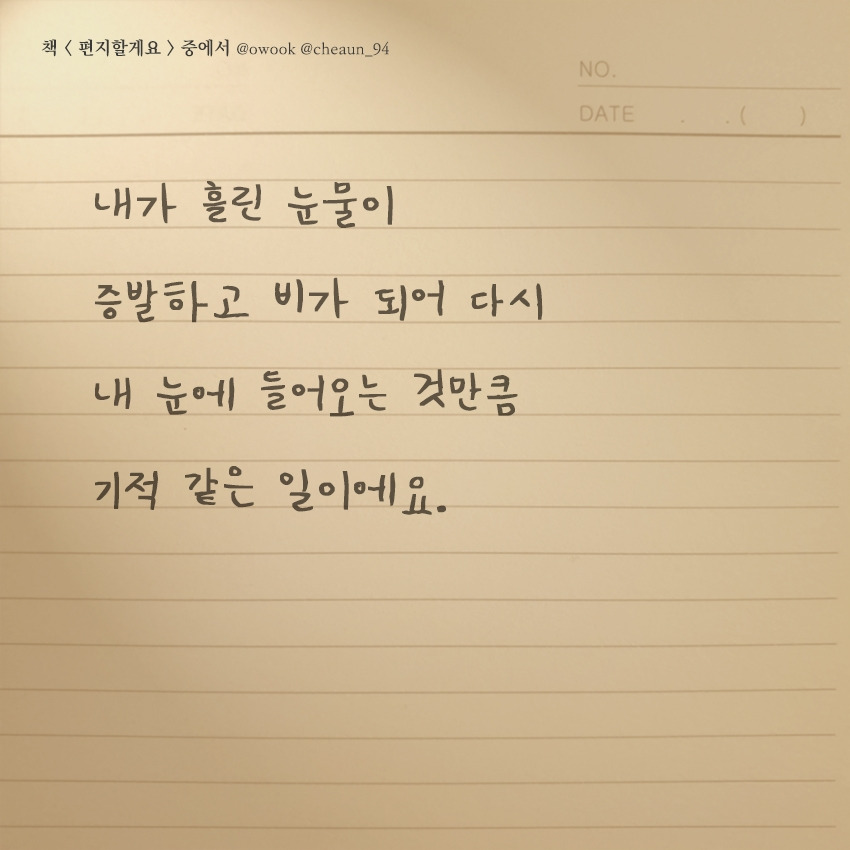 책 < 편지할게요 > 중에서 @owook @cheaun_94
NO.
DATE . . ( )
내가 흘린 눈물이
증발하고 비가 되어 다시
내 눈에 들어오는 것만큼
기적 같은 일이에요.